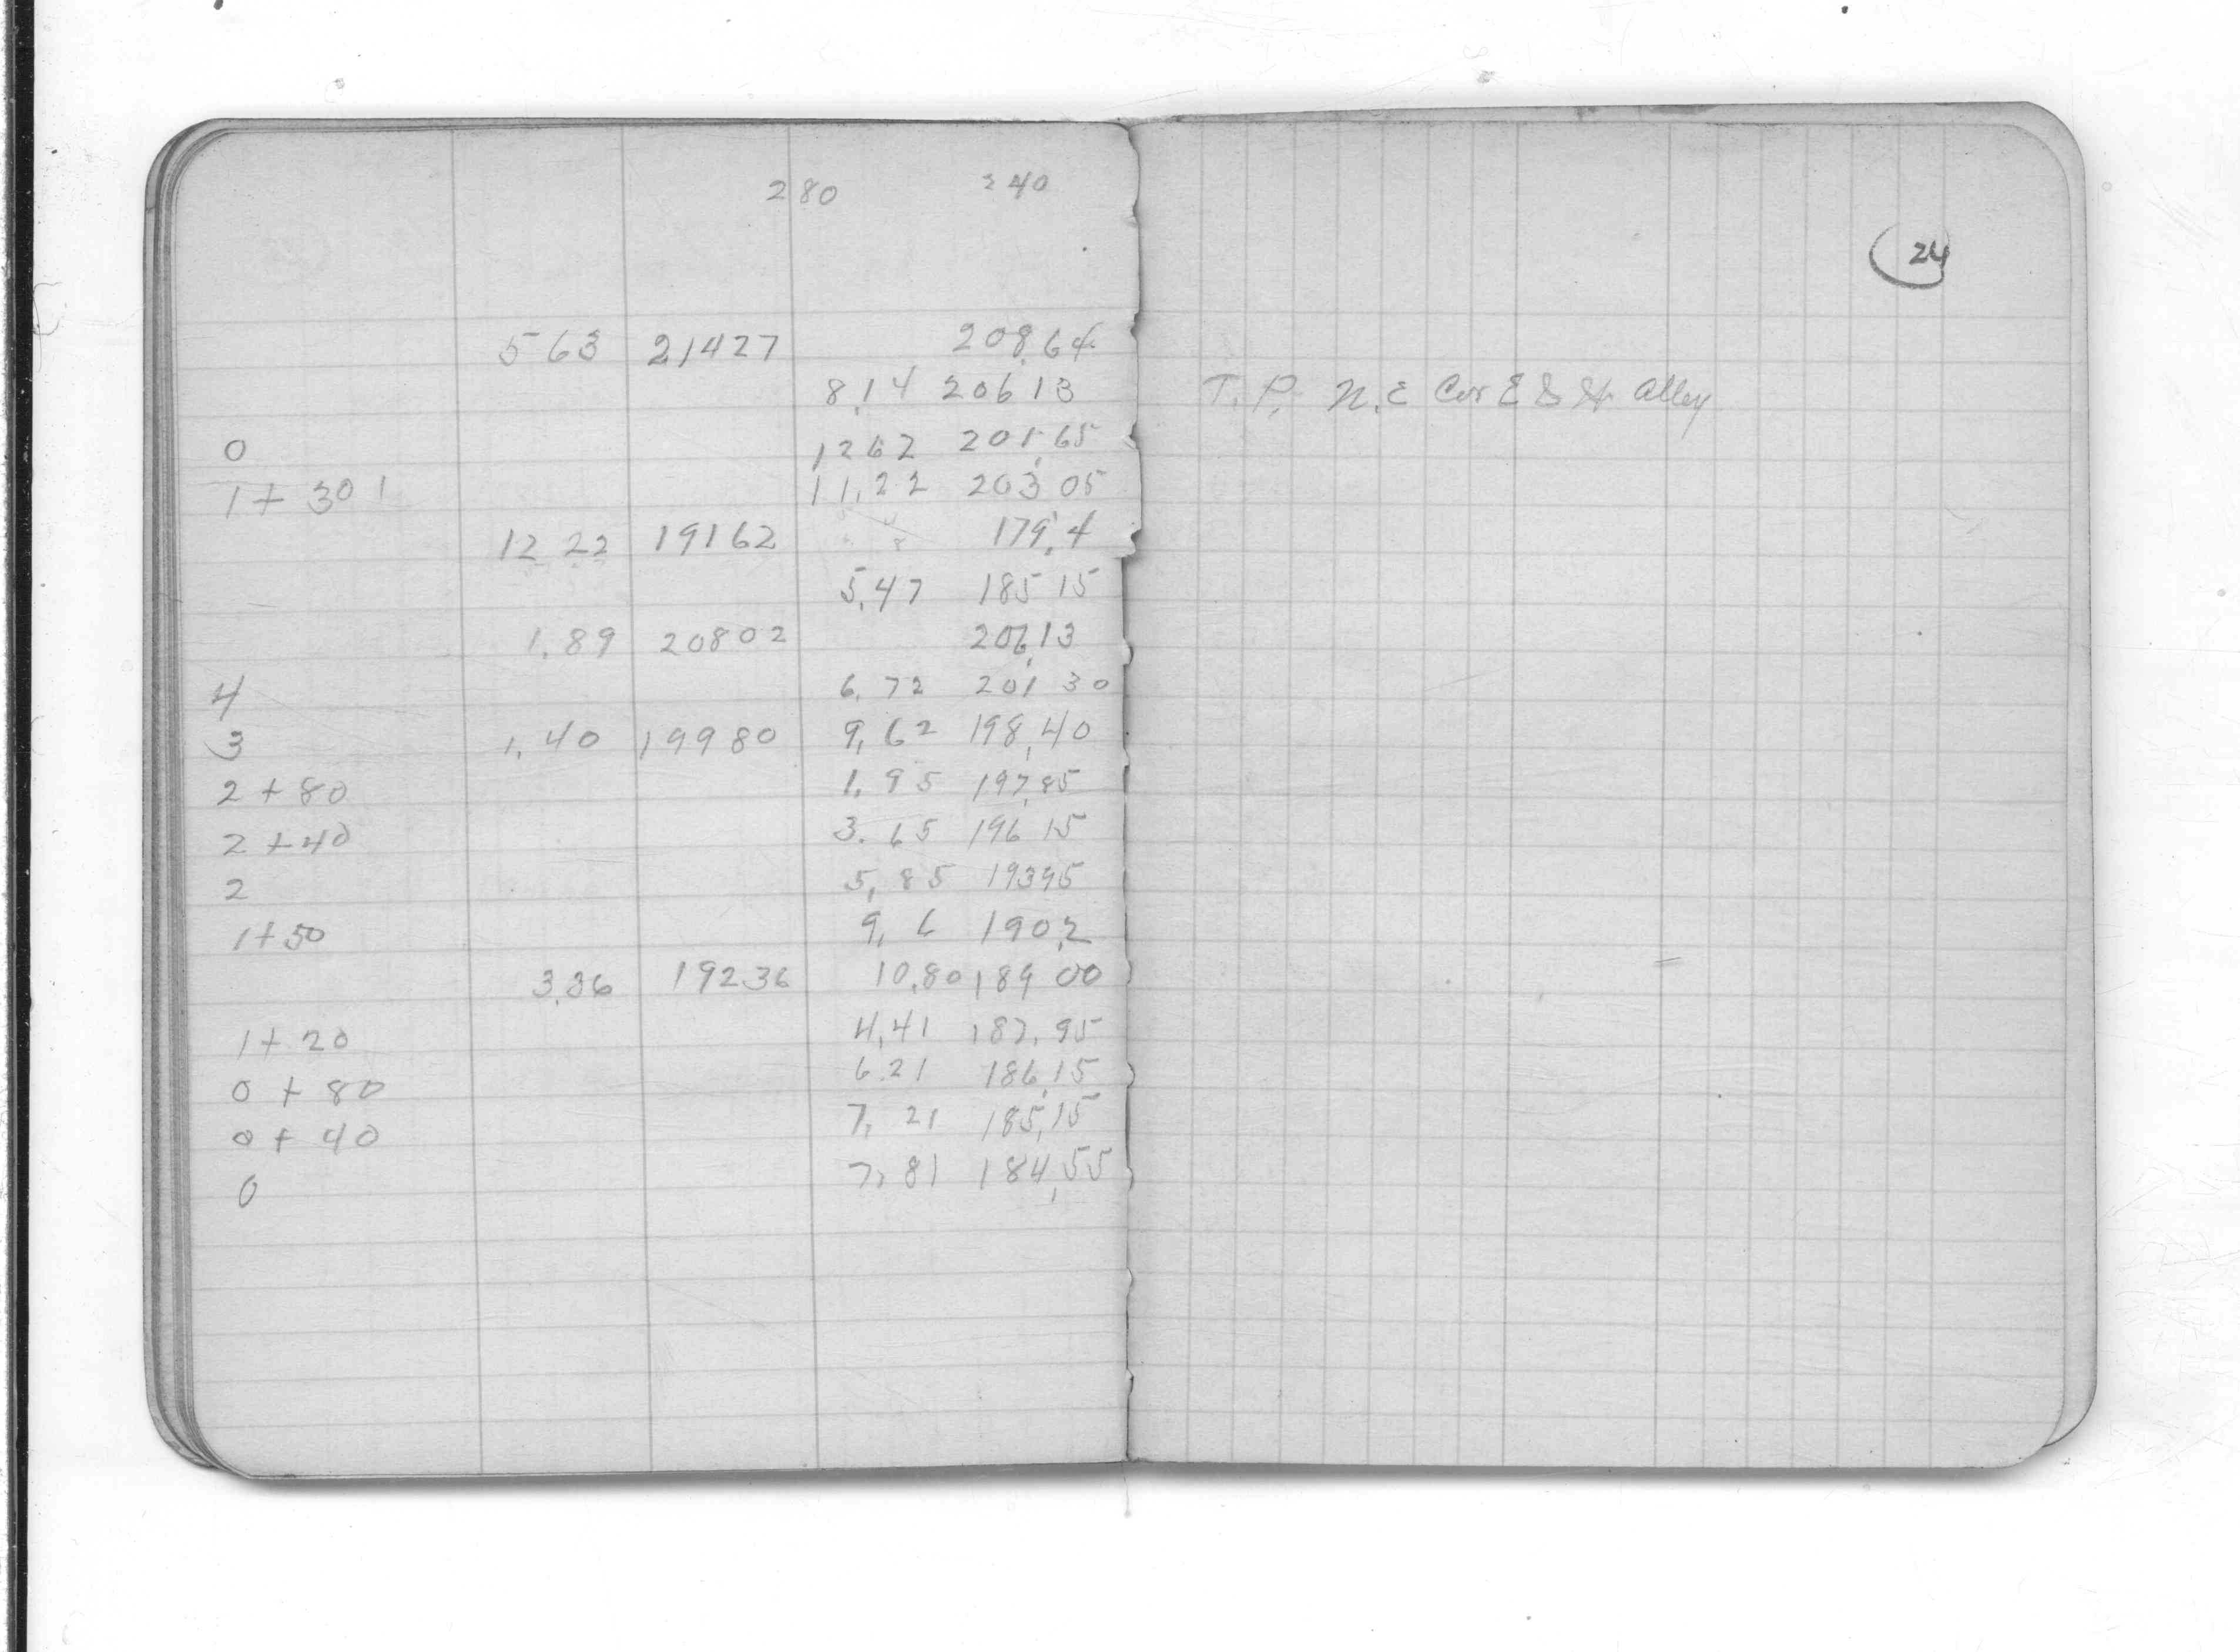 280 240
24
5 63 21427 208.64
8.14 206 13 T.P. N.E Cor E & St Alley
0 1262 201.65
1 + 30 1 11.22 203 05
12 22 19162 179.4
5.47 185 15
1.89 20802 206.13
4 6.72 201 30
3 1.40 19980 9.62 198.40
2 + 80 1.95 197.85
2 + 40 3.65 196 15
2 5.85 19395
1+50 9.6 190.2
3.36 192.36 10.80 189 00
1+ 20 4.41 187.95
0 + 80 6.21 186.15
0 + 40 7.21 185.15
0 7.81 184.55